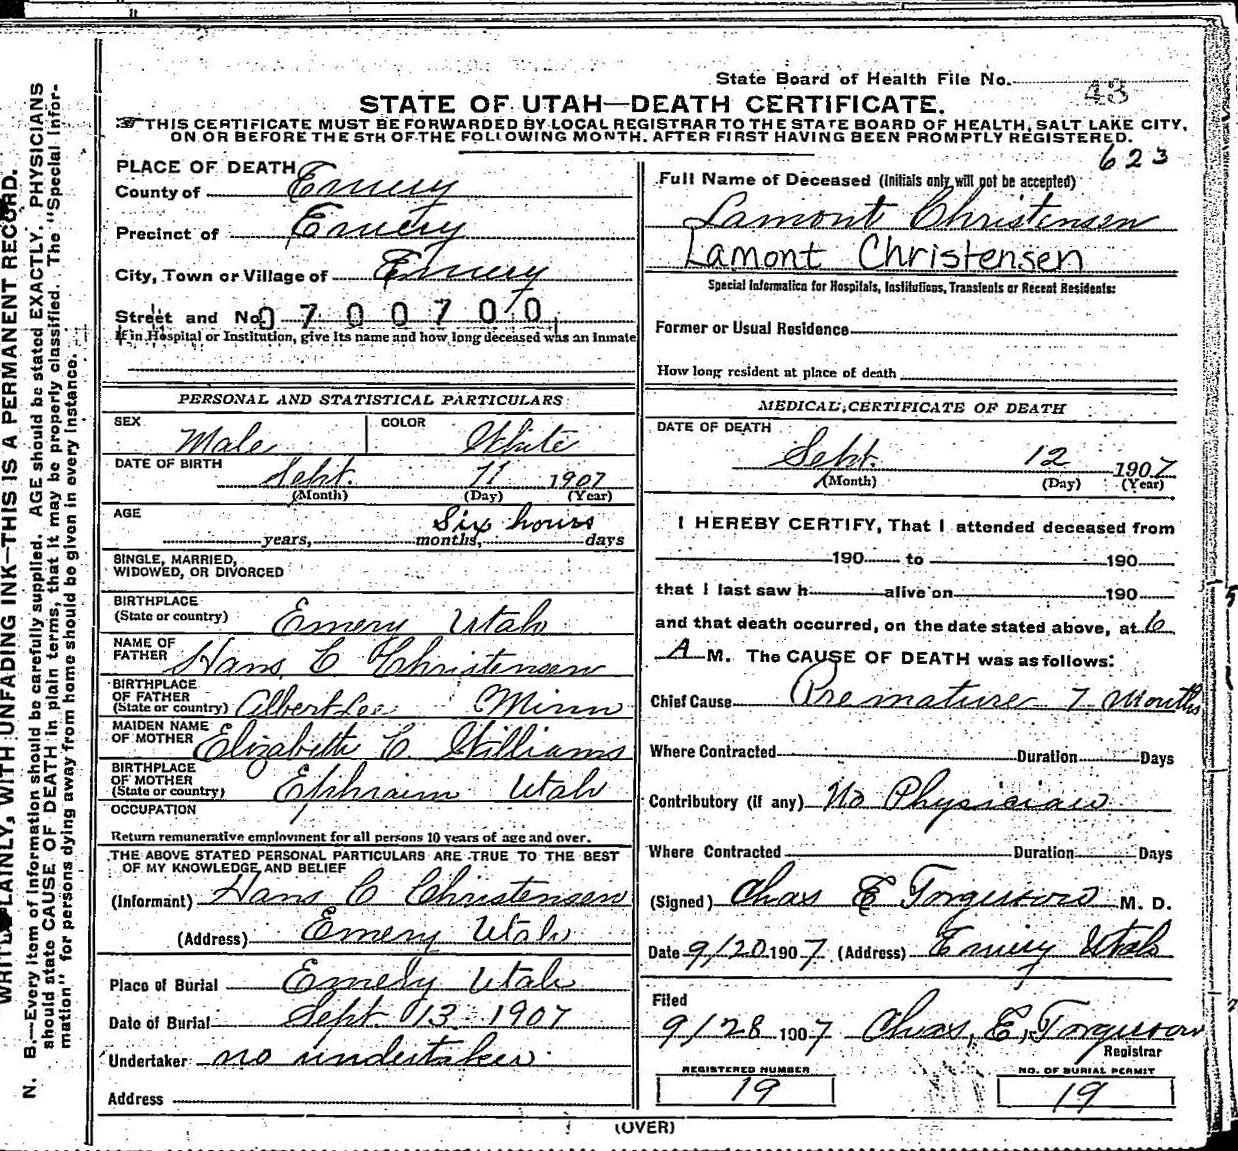 State Board of Health File No. 43
STATE OF UTAH—DEATH CERTIFICATE.
THIS CERTIFICATE MUST BE FORWARDED BY LOCAL REGISTRAR TO THE STATE BOARD OF HEALTH, SALT LAKE CITY,
ON OR BEFORE THE 5TH OF THE FOLLOWING MONTH, AFTER FIRST HAVING BEEN PROMPTLY REGISTERED.
623
PLACE OF DEATH
County of Emery
Precinct of Emery
City, Town or Village of Emery
Street and No. 0700700
If in Hospital or Institution, give its name and how long deceased was an inmate
PERSONAL AND STATISTICAL PARTICULARS
SEX Male COLOR White
DATE OF BIRTH Sept. 11 1907
(Month) (Day) (Year)
AGE Six hours
years, months, days
SINGLE, MARRIED,
WIDOWED, OR DIVORCED
BIRTHPLACE
(State or country) Emery Utah
NAME OF
FATHER Hans C Christensen
BIRTHPLACE
OF FATHER
(State or country) Albert Lea Minn
MAIDEN NAME
OF MOTHER Elizabeth C. Williams
BIRTHPLACE
OF MOTHER
(State or country) Ephraim Utah
OCCUPATION
Return remunerative employment for all persons 10 years of age and over.
THE ABOVE STATED PERSONAL PARTICULARS ARE TRUE TO THE BEST
OF MY KNOWLEDGE AND BELIEF
(Informant) Hans C Christensen
(Address) Emery Utah
Place of Burial Emery Utah
Date of Burial Sept. 13 1907
Undertaker no undertaker
Address
Full Name of Deceased (Initials only will not be accepted)
Lamont Christensen
Lamont Christensen
Special Information for Hospitals, Institutions, Transients or Recent Residents:
Former or Usual Residence
How long resident at place of death
MEDICAL CERTIFICATE OF DEATH
DATE OF DEATH
Sept. 12 1907
(Month) (Day) (Year)
I HEREBY CERTIFY, That I attended deceased from
190 to 190
that I last saw h alive on 190
and that death occurred, on the date stated above, at 6
A M. The CAUSE OF DEATH was as follows:
Chief Cause Premature 7 Months
Where Contracted Duration Days
Contributory (if any) No Physician
Where Contracted Duration Days
(Signed) Chas E Torgerson M. D.
Date 9/20 1907 (Address) Emery Utah
Filed
9/28 1907 Chas, E, Torgerson
Registrar
REGISTERED NUMBER
19
NO. OF BURIAL PERMIT
19
(OVER)
WRITE PLAINLY, WITH UNFADING INK—THIS IS A PERMANENT RECORD.
N. B.—Every item of information should be carefully supplied. AGE should be stated EXACTLY. PHYSICIANS
should state CAUSE OF DEATH in plain terms, that it may be properly classified. The "Special Infor-
mation" for persons dying away from home should be given in every instance.